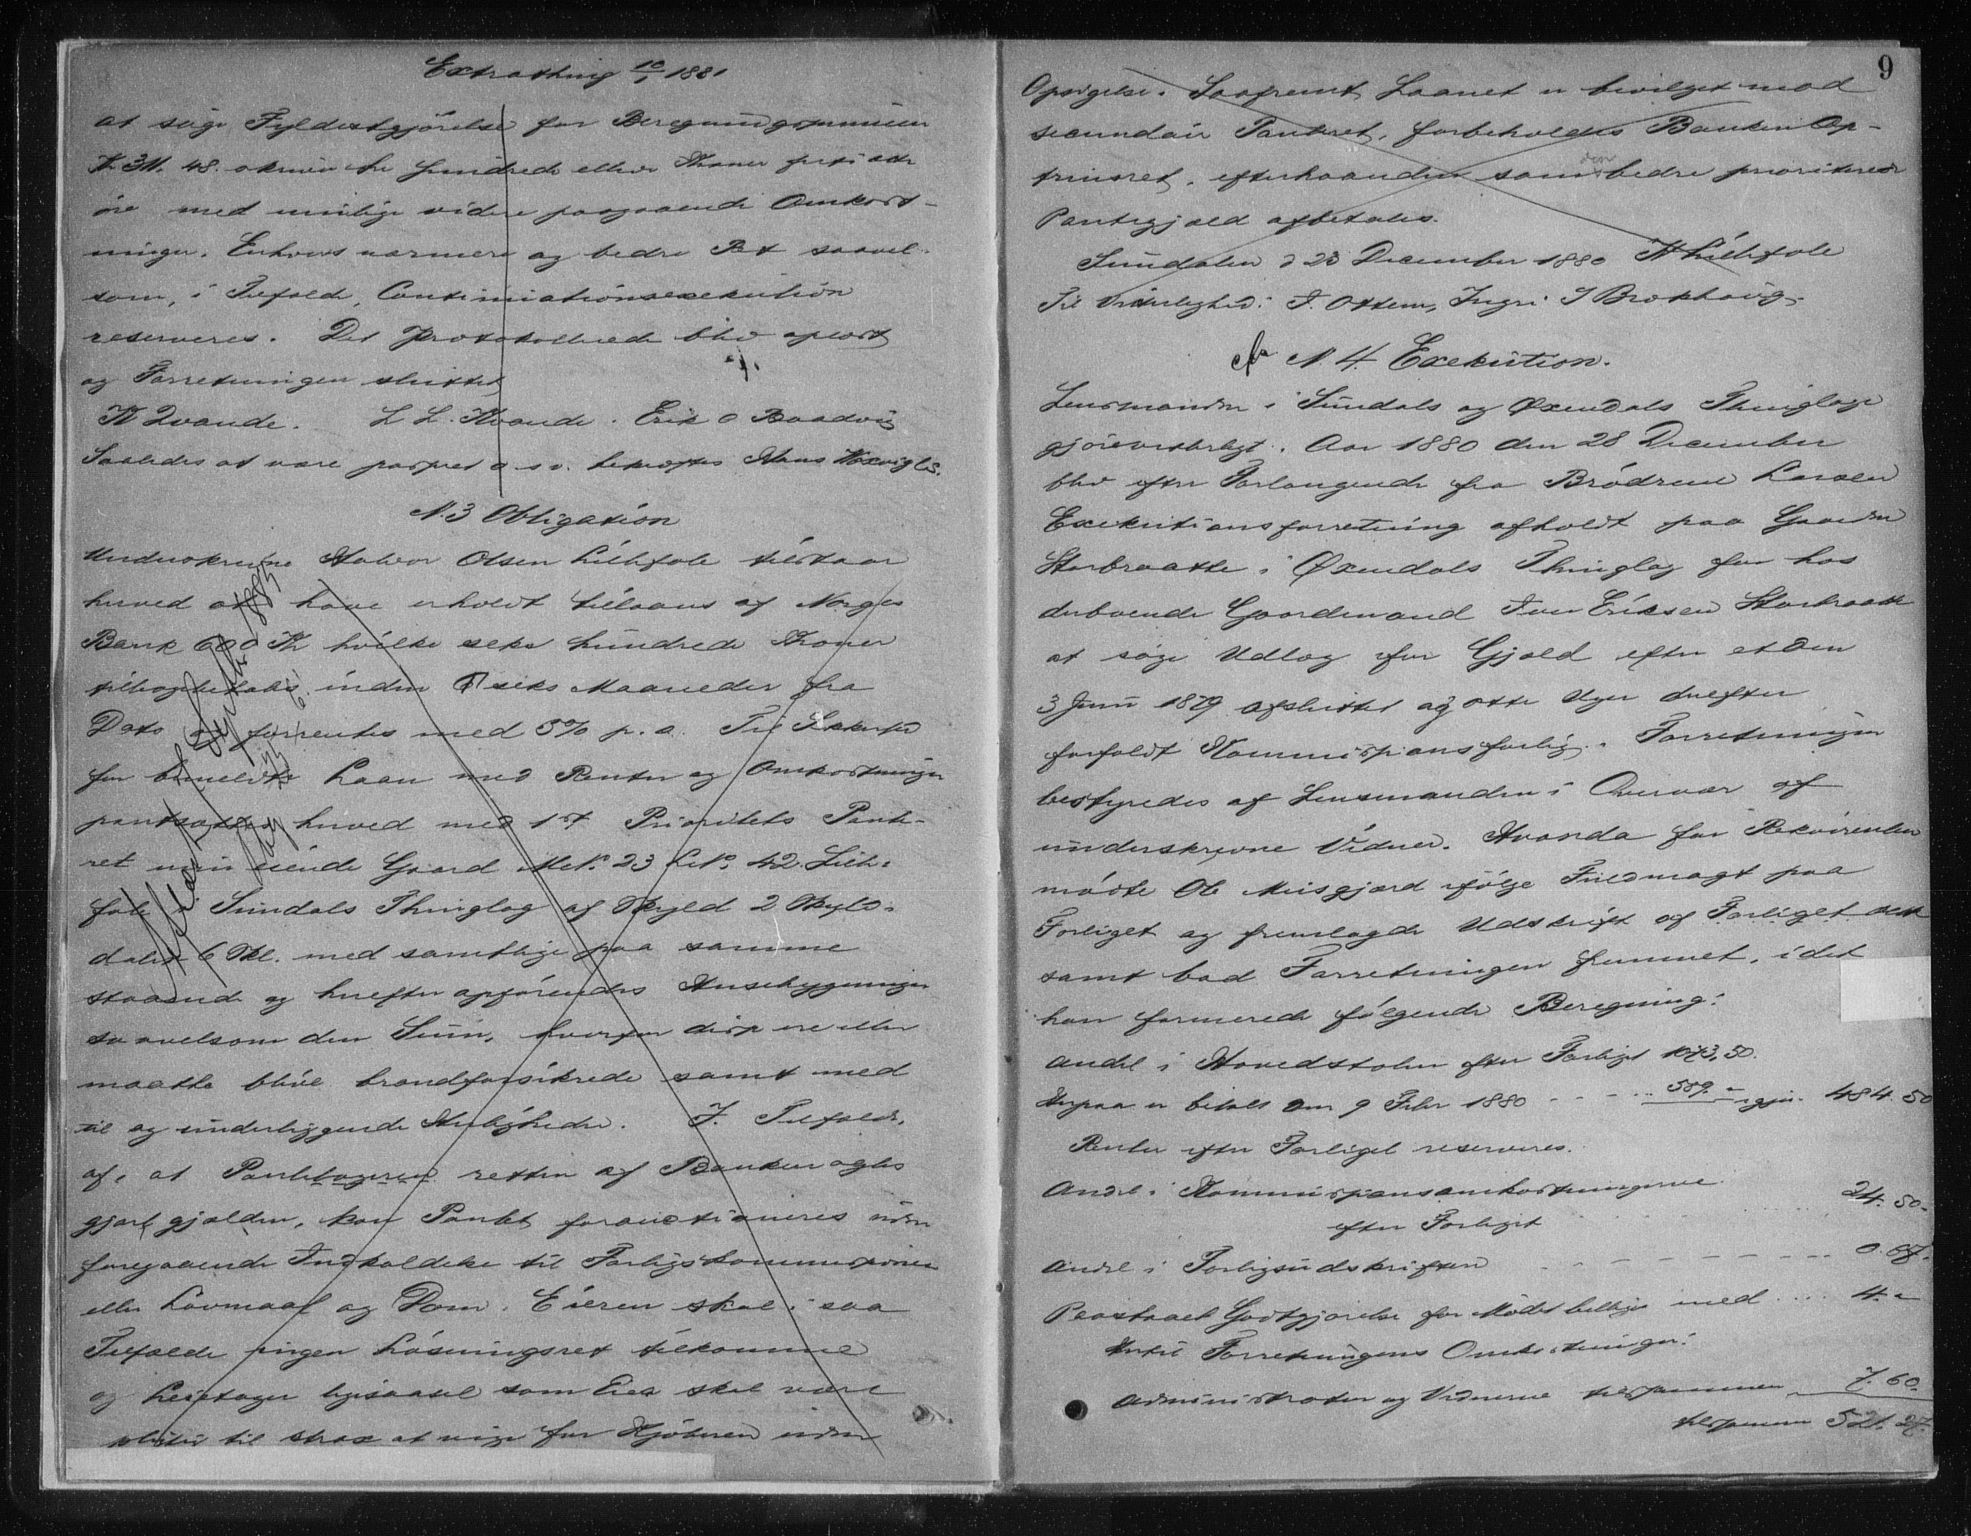 Extrathing 10/1 1881
at søge Fyldestgjørelse for Beregningssummen
Kr. 311. 48. skriver tre hundrede elleve Kroner forti otte
øre med muligt videre paagaaende Omkost-
ninger. Enhvers nærmere og bedre Ret saavel-
som, i Tilfælde, Continuationsexekution
reserveres. Det Protokollerede blev oplæst
og Forretningen sluttet
K Qvande. L L. Hvande. Erik O Baadvig
Saaledes at være passeret o. s. v. bekræftes Hans
N. 3 Obligation
Underskrevne Halvor Olsen Lillifale tilstaar
herved at have erholdt tillaans af Norges
Bank 600 Kr hvilke seks hundrede Kroner
tilbagebetales inden 6 seks Maaneder fra
Dato og forrentes med 5% p. a. Til Sikkerhed
for bemeldte Laan med Renter og Omkostninger
pantsættes herved med 1st Prioritets Pante-
ret min eiende Gaard Mt.No. 23 L.No. 42. Lilli-
fale i Sundals Thinglag af Skyld 2 Skyld-
daler 6 Skl. med samtlige paa samme
staaende og herefter opførendes Husebygninger
saavelsom den Sum, hvorfor disse ere eller
maatte blive brandforsikrede samt med
til og underliggende Herligheder. I Tilfælde
af, at Panthageren rettin af Banken ogles
gjort gjælden, kan Pantet forauctioneres uden
foregaaende Indkaldelse til Forligskommissionen
eller Lovmaal og Dom. Eieren skal i saa
Tilfælde ingen Løsningsret tilkomme
og Leietager ligesaavel som Eier skal være
pligtig til strax at vige for Kjøberen uden
Aflæst 1 Septbr 1883
9
Opsigelse. Saafremt Laanet er bevilget mod
secundair Panteret, forbeholdes Banken Op-
trinsret, efterhaanden som den bedre prioriterede
Pantegjæld afbetales.
Sundalen d 23 December 1880 H Lillifale
Til Vitterlighed: I. Ottem, Ingri I Brokhaug.
N 4. Exekution.
Lensmanden i Sundals og Øxendals Thinglage
gjøre vitterligt. Aar 1880 den 28 December
blev efter Forlangende fra Brødrene Larsen
Exekutionsforretning afholdt paa Gaarden
Storbraatte i Øxendals Thinglag for hos
derboende Gaardmand Iver Eriksen Storbraatte
at søge Udlæg for Gjæld efter et den
3 Juni 1879 afsluttet og otte Uger derefter
forfaldt Kommissionsforlig. Forretningen
bestyredes af Lensmanden i Overvær af
underskrevne Vidner. Hvorda for Rekvirenten
mødte Ole Misgjerd ifølge Fuldmagt paa
Forliget og fremlagde Udskrift af Forliget selv
samt bad Forretningen fremmet, idet
han formerede følgende Beregning:
Andel i Hovedstolen efter Forliget 1073,50.
Herpaa er betalt den 9 Febr 1880 - - - - 589. - igjen 484.50
Renter efter Forliget reserveres.
Andel i Kommissionsomkostningerne
efter Forliget 24. 50.
Andel i Forligsudskriften - - - - - - 0.67.
Paastaaet Godtgjørelse for Mødet billigst med .... 4. -
Hertil Forretningens Omkostninger:
Administrator og Vidnerne tilsammen 7. 60.
tilsammen 521. 27.